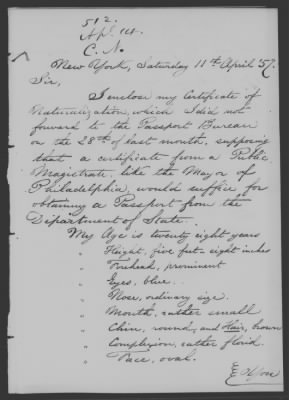 512.
Apl. 14.
C. N.
New York, Saturday 11th April 57.
Sir,
I enclose my Certificate of
Naturalization, which I did not
forward to the Passport Bureau
on the 28th of last month, supposing
that a certificate from a Public
Magistrate, like the Mayor of
Philadelphia, would suffice for
obtaining a Passport from the
Department of State.
My Age is twenty eight years
" Height, five feet-eight inches
" Forehead, prominent
" Eyes, blue..
" Nose, ordinary size.
" Mouth, rather small
" Chin, round, and Hair, brown
" Complexion, rather florid.
" Face, oval.